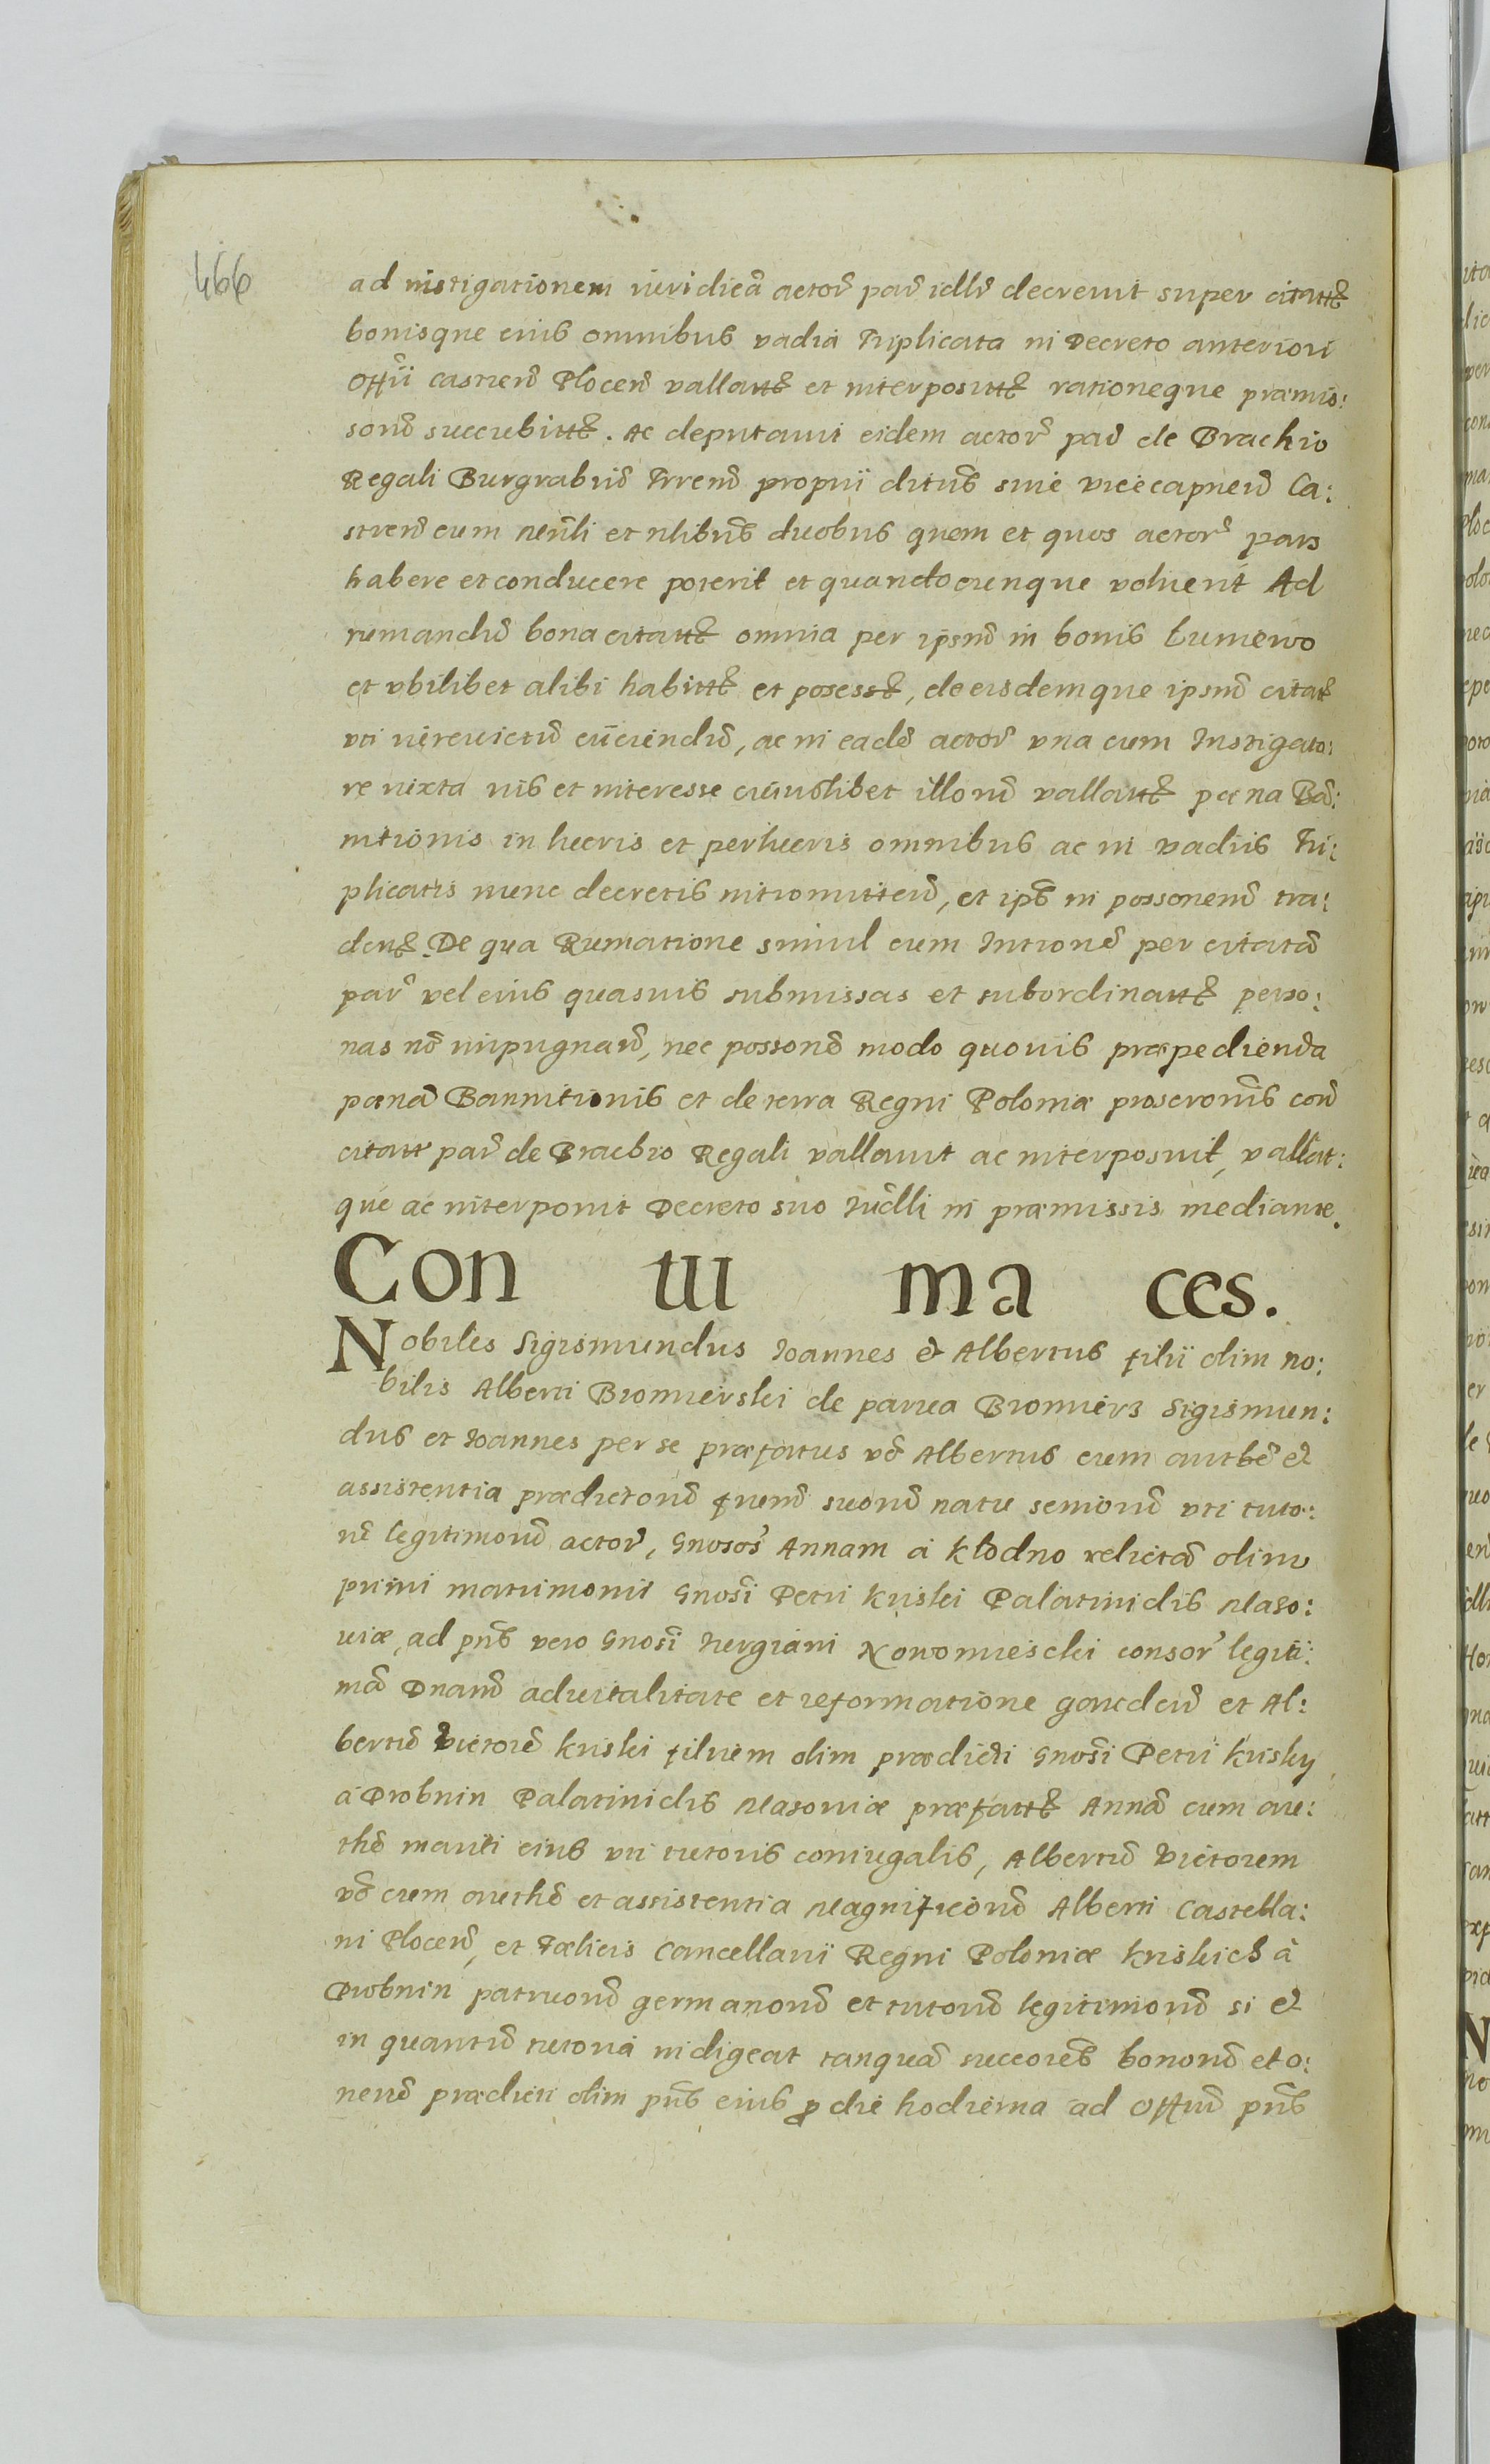 466
ad instigationem iuridicã actor̃ par̃ idllr̃ decreuit super citatt̃
bonisque eius omnibus vadia Triplicata in Decreto anteriori
Offii castreñ Ploceñ vallatt̃ et interpositt̃ rationeque præmis:
sorũ succubitt̃. Ac deputauit eidem actor̃ par̃ de Brachio
Regali Burgrabiũ Trrenũ proprii ditũs siue vicecapneũ Ca:
streñ cum Mñrli et nlibũs duobus quem et quos actor̃ pars
habere et conducere poterit et quandocunque voluerit Ad
rumandũ bona citatt̃ omnia per ipsũ in bonis Lumewo
et vbilibet alibi habitt̃ et possess̃, de eisdemque ipsũ citat̃
vti iurevictũ eũciendũ, ac in eadẽ actor̃ vna cum Instigato:
re iuxta ius et interesse cuiuslibet illorũ vallatt̃ pæna Bã:
nitionis in lucris et perlucris omnibus ac in vadiis Tri:
plicatis nunc decretis intromitteñ, et ips̃ in possonem̃ tra:
dent̃. De qua Rumatione simul cum Intronẽ per citatã
par̃ vel eius quasuis submissas et subordinatt̃ perso:
nas nõ impugnañ, nec possonẽ modo quouis præpedienda
pænã Bannitionis et de terra Regni Poloniæ proscronĩs cõn
citatt par̃ de Brachio Regali vallauit ac interposuit, vallat:
que ac interponit Decreto suo Iudlli in præmissis mediante.
Con tu ma ces.
Nobiles Sigismundus Ioannes et Albertus filii olim no:
bilis Alberti Bromierski de parua Bromierz Sigismun:
dus et Ioannes per se præfatus võ Albertus cum authẽ et
assistentia prædictorũ frũm suorũ natu seniorũ vti tuto:
rũ legitimorũ actor̃, Gnosos̃ Annam a Klodno relictã olim
primi matrimonii Gnosĩ Petri Kriski Palatinidis Maso:
uiæ, ad pñs vero Gnosĩ Iurgiani Nowomieschi consor̃ legiti:
mã Dnanũ aduitalitate et reformatione gaudeñ et Al:
bertũ Victorẽ Kriski filium olim prædicti Gnosĩ Petri Krisky
a Drobnin Palatinidis Masouiæ præfatt̃ Annã cum au:
thẽ mariti eius vti tutoris coniugalis, Albertũ Victorem
võ cum authẽ et assistentia Magnificorũ Alberti Castella:
ni Ploceñ, et Fælicis Cancellarii Regni Poloniæ Kriskich à
Drobnin patruorũ germanorũ et tutorũ legitimorũ si et
in quantũ tutoria indigeat tanquã succores̃ bonorũ et o:
nerũ prædicti olim pñs eius p die hodierna ad Offiũ pñs